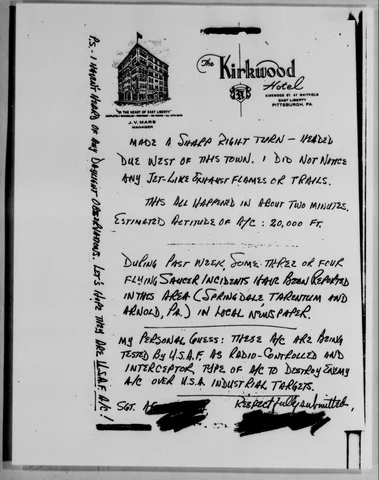 The Kirkwood
Hotel
KIRKWOOD ST. AT WHITFIELD
EAST LIBERTY
PITTSBURGH, PA.
"IN THE HEART OF EAST LIBERTY"
J. V. MARS
MANAGER
MADE A SHARP RIGHT TURN – HEADED
DUE WEST OF THIS TOWN. I DID NOT NOTICE
ANY JET-LIKE EXHAUST FLAMES OR TRAILS.
THIS ALL HAPPENED IN ABOUT TWO MINUTES.
ESTIMATED ALTITUDE OF A/C: 20,000 FT.
DURING PAST WEEK, SOME THREE OR FOUR
FLYING SAUCER INCIDENTS HAVE BEEN REPORTED
IN THIS AREA (SPRINGDALE, TARENTUM AND
ARNOLD, PA.) IN LOCAL NEWSPAPER.
MY PERSONAL GUESS: THESE A/C ARE BEING
TESTED BY U.S.A.F. AS RADIO-CONTROLLED AND
INTERCEPTOR TYPE OF A/C TO DESTROY ENEMY
A/C OVER U.S.A. INDUSTRIAL TARGETS.
RESPECTFULLY SUBMITTED,
SGT.
P.S. - I HAVEN'T HEARD OF ANY DAYLIGHT OBSERVATIONS. LET'S HOPE THEY ARE U.S.A.F. A/C!